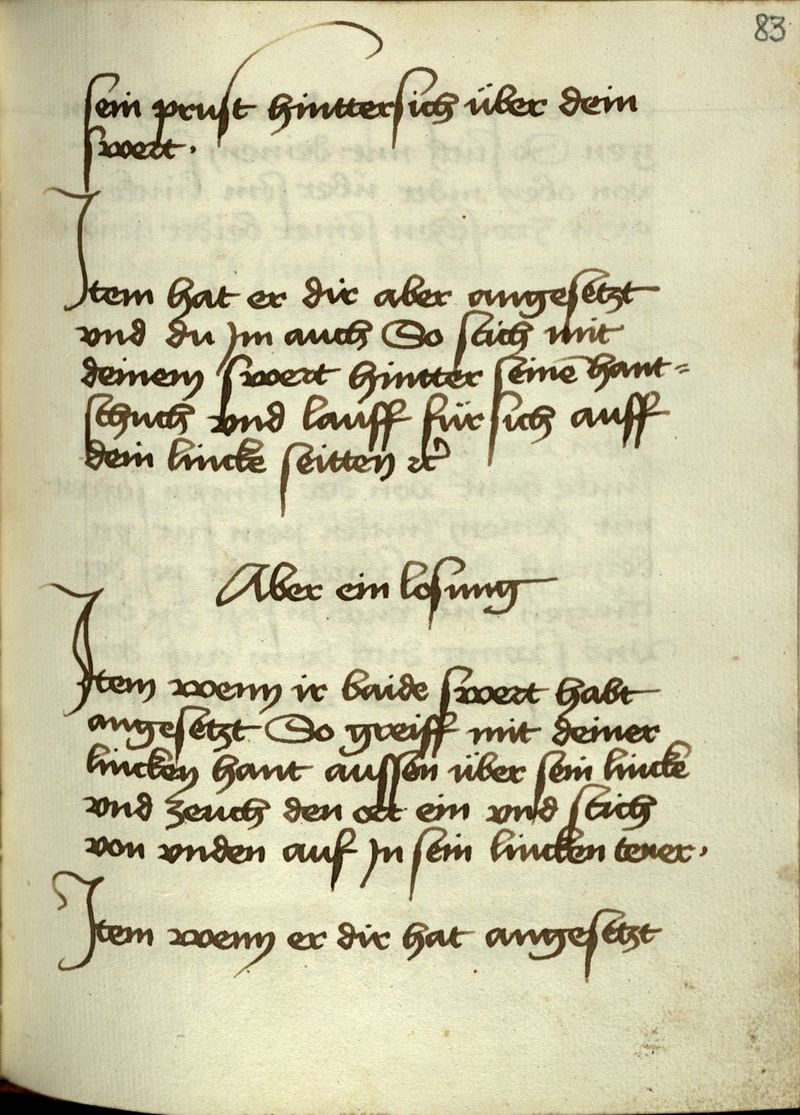 83
sein prust hinttersich über dein
swert .
Item hat er dir aber angesetzt
vnd du Jm auch So stich mit
deinem swert hintter seinē hant=
schuch vnd lauff für sich auff
dein lincke seitten ꝛc
Aber ein losung
Item wenn ir baide swert habt
angesetzt So greiff mit deiner
lincken hant aussen über sein lincke
vnd zeuch den ort ein vnd stich
von vnden auf Jn sein lincken tener .
Item wenn er dir hat angesetzt